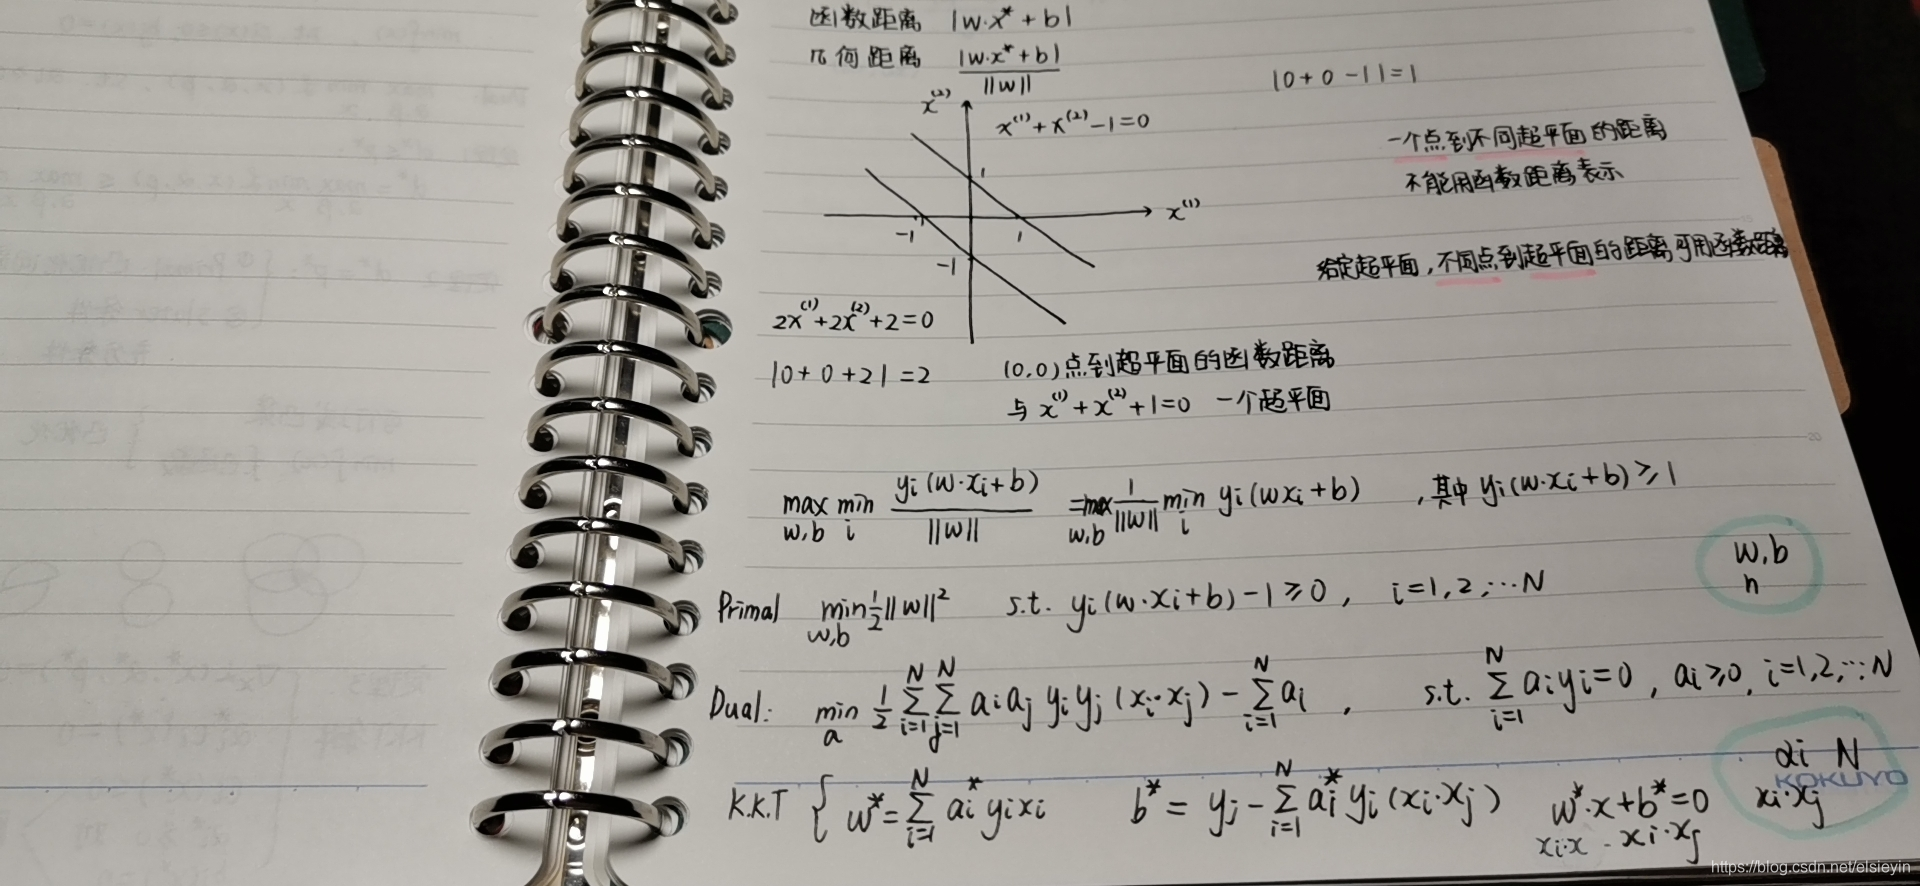 函数距离 |w·x* + b|
几何距离 |w·x*+b| / ||w||
|0+0-1|=1
x⁽²⁾
x⁽¹⁾+x⁽²⁾-1=0
一个点到不同超平面的距离
不能用函数距离表示
1
x⁽¹⁾
-1
1
-1
给定超平面,不同点到超平面的距离可用函数距离
2x⁽¹⁾+2x⁽²⁾+2=0
|0+0+2|=2
(0,0)点到超平面的函数距离
与 x⁽¹⁾+x⁽²⁾+1=0 一个超平面
max_{w,b} min_i yi(w·xi+b) / ||w|| = max_{w,b} 1/||w|| min_i yi(wxi+b) ,其中 yi(w·xi+b)≥1
w,b
n
Primal min_{w,b} ½||w||² s.t. yi(w·xi+b)-1≥0, i=1,2,…N
Dual: min_a ½ Σ_{i=1}^N Σ_{j=1}^N ai aj yi yj (xi·xj) - Σ_{i=1}^N ai , s.t. Σ_{i=1}^N ai yi=0, ai≥0, i=1,2,…N
αi N
KOKUYO
xi·xj
K.K.T { w*= Σ_{i=1}^N ai* yi xi b* = yj - Σ_{i=1}^N ai* yi (xi·xj) w*·x+b*=0
xi·x xi·xj
https://blog.csdn.net/elsieyin